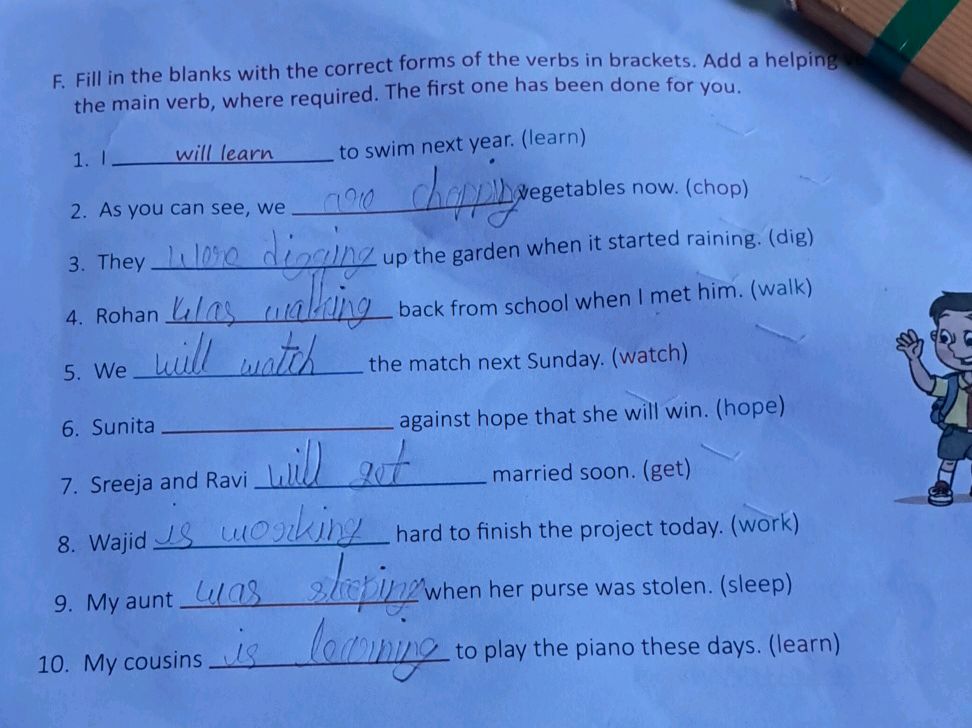 F. Fill in the blanks with the correct forms of the verbs in brackets. Add a helping
the main verb, where required. The first one has been done for you.
1. I will learn to swim next year. (learn)
2. As you can see, we are chopping vegetables now. (chop)
3. They were digging up the garden when it started raining. (dig)
4. Rohan was walking back from school when I met him. (walk)
5. We will watch the match next Sunday. (watch)
6. Sunita __________ against hope that she will win. (hope)
7. Sreeja and Ravi will get married soon. (get)
8. Wajid is working hard to finish the project today. (work)
9. My aunt was sleeping when her purse was stolen. (sleep)
10. My cousins is learning to play the piano these days. (learn)